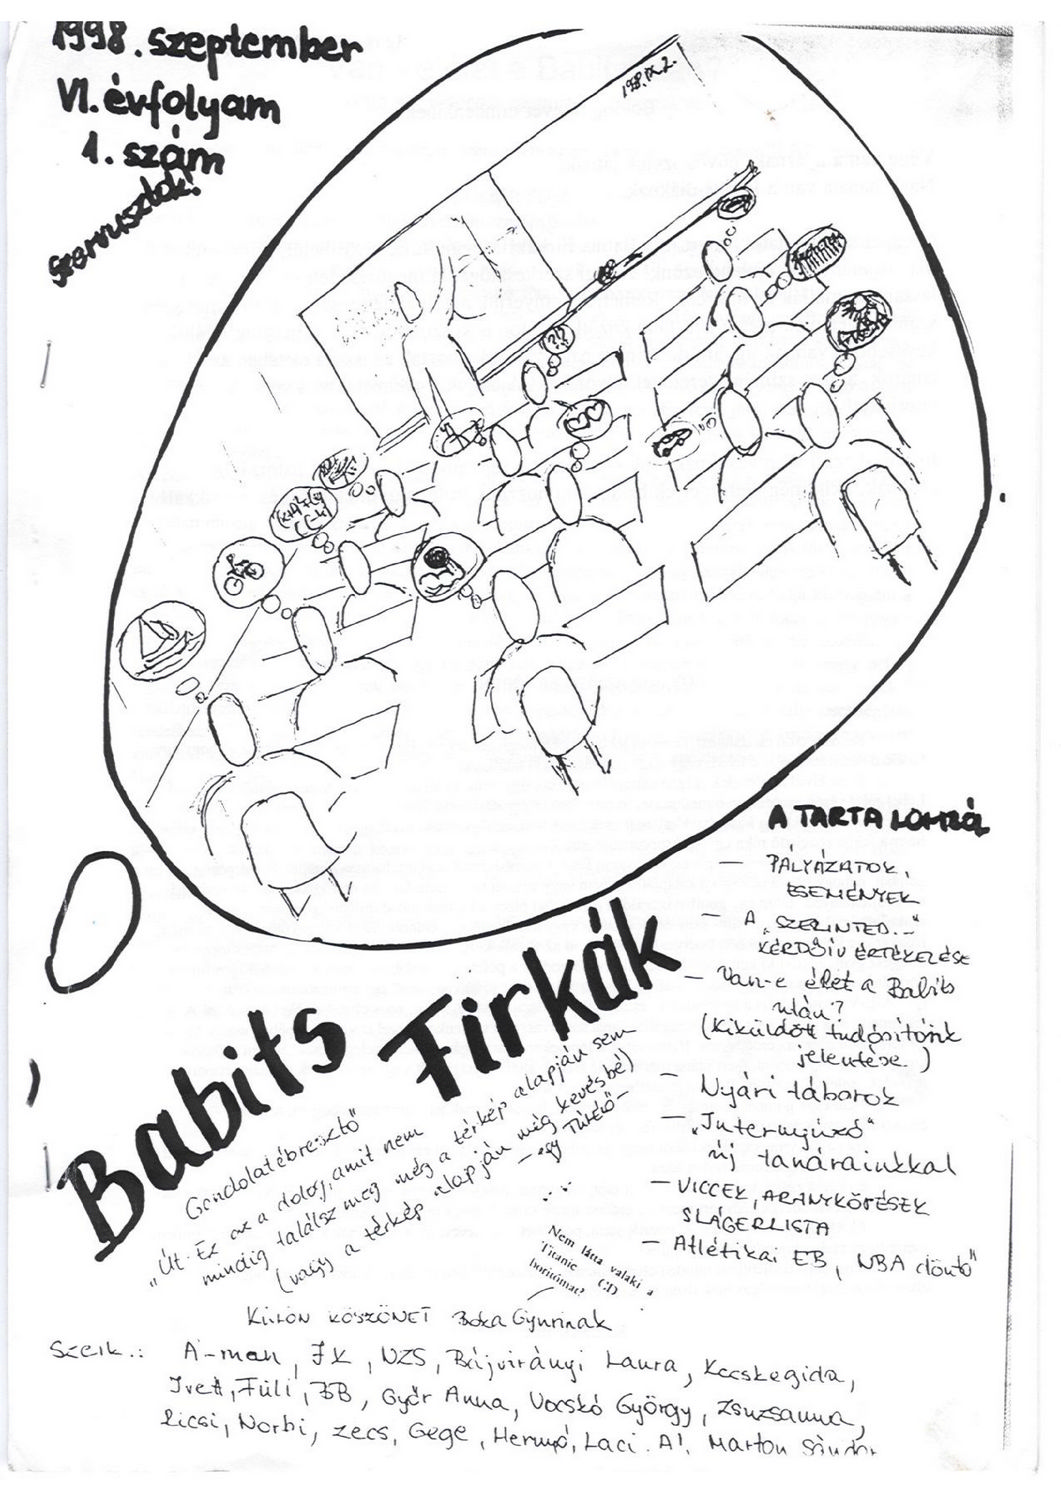 1998. szeptember
VI. évfolyam
1. szám
szervusztok!
1998. IX. 2.
?!?
A TARTALOMBÓL
— PÁLYÁZATOK,
ESEMÉNYEK
— A „SZERINTED..."
KÉRDŐÍV ÉRTÉKELÉSE
— Van-e élet a Babits
után?
(Kiküldött tudósítónk
jelentése.)
— Nyári táborok
— „Internyúzó"
új tanárainkkal
— VICCEK, ARANYKÖPÉSEK
SLÁGERLISTA
— Atlétikai EB, NBA döntő"
Babits Firkák
Gondolatébresztő"
„Út: Ez az a dolog, amit nem
mindig találsz meg még a térkép alapján sem
(vagy a térkép alapján még kevésbé)
— egy Túlélő —
Nem látta valaki a
Titanic CD
borítómat?
KÜLÖN KÖSZÖNET Boka Gyurinak
Szerk.: A-man, JK, NZS, Bájvirányi Laura, Kecskegida,
Ivett, Füli, BB, Győr Anna, Vocskó György, Zsuzsanna,
Ricsi, Norbi, zecs, Gege, Hernyó, Laci. A!, Marton Sándor